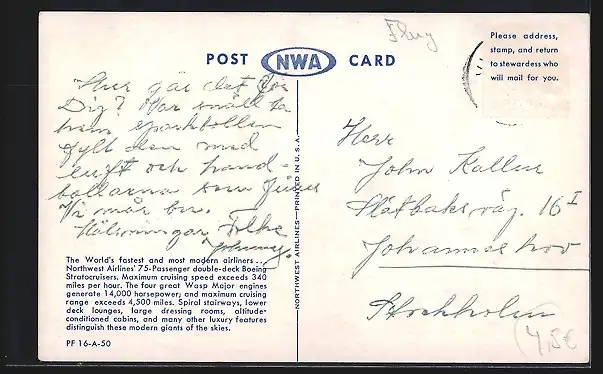 Flug
POST NWA CARD
Please address,
stamp, and return
to stewardess who
will mail for you.
Hur går det för
Dig? Var snäll ta
hem sparkbollen
fyll den med
luft och hand-
bollarna som finns
Vi mår bra.
Hälsningar Folke
Herr
John Kallin
Slåtbaksväg. 16 I
Johanneshov
Stockholm
The World's fastest and most modern airliners...
Northwest Airlines' 75-Passenger double-deck Boeing
Stratocruisers. Maximum cruising speed exceeds 340
miles per hour. The four great Wasp Major engines
generate 14,000 horsepower; and maximum cruising
range exceeds 4,500 miles. Spiral stairways, lower
deck lounges, large dressing rooms, altitude-
conditioned cabins, and many other luxury features
distinguish these modern giants of the skies.
PF 16-A-50
NORTHWEST AIRLINES—PRINTED IN U.S.A.
4,5€